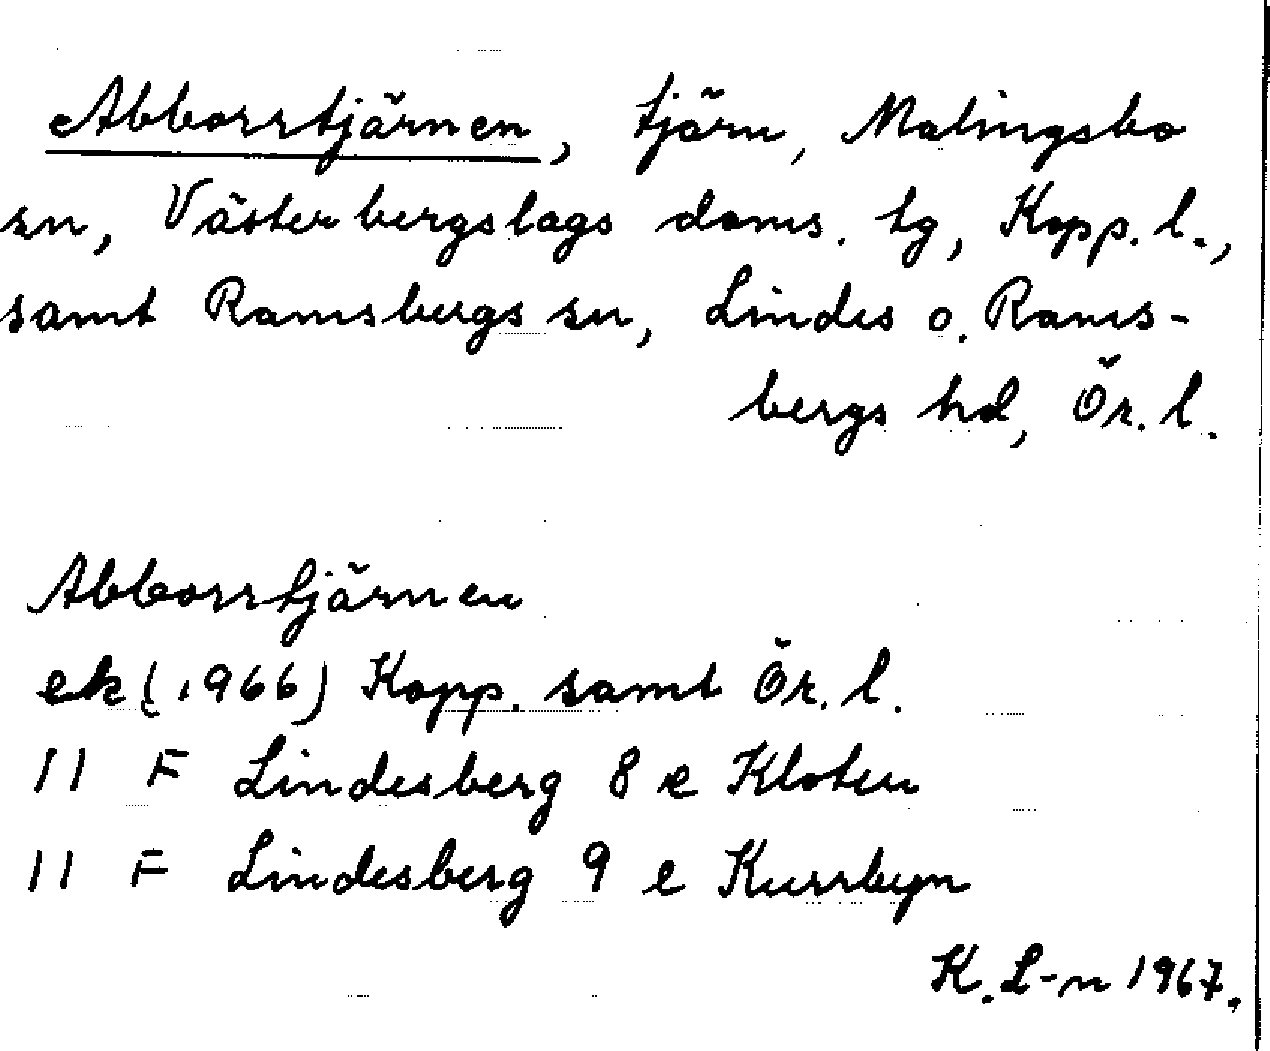 Abborrtjärnen, tjärn, Malingsbo
sn, Västerbergslags doms. tg, Kopp. l.,
samt Ramsbergs sn, Lindes o. Rams-
bergs hd, Ör. l.
Abborrtjärnen
ek (1966) Kopp. samt Ör. l.
11 F Lindesberg 8 e Kloten
11 F Lindesberg 9 e Kurrbyn
K. L-n 1967.